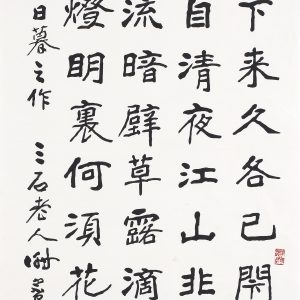 下来久各已閉
自清夜江山非
流暗壁草露滴
燈明裏何須花
日暮之作 三石老人